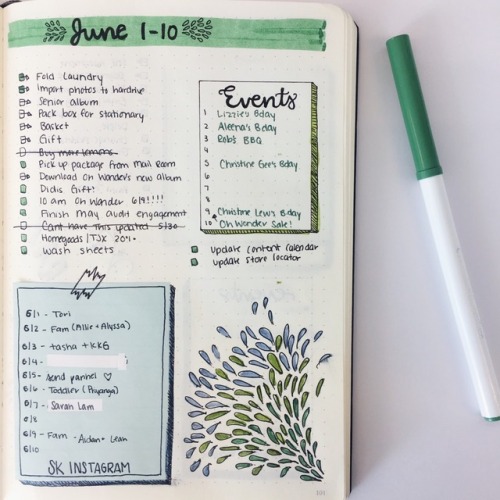 June 1-10
Fold laundry
Import photos to hardrive
Senior album
Pack box for stationary
Basket
Gift
Buy more lemons
Pick up package from mail room
Download Oh Wonder's new album
Didis Gift!
10 am Oh Wonder 6/9!!!!
Finish May audit engagement
Cant have this updated 5/30
Homegoods/TJX 20%
Wash sheets
Events
1 Lizzie's Bday
2 Aleena's Bday
3 Rob's BBQ
4
5 Christine Gee's Bday
6
7
8
9 Christine Lew's Bday
10 Oh Wonder Sale!
update content calendar
update store locator
6/1 - Tori
6/2 - Fam (Allie + Alyssa)
6/3 - tasha + KKG
6/4 -
6/5 - Send pannel ♡
6/6 - Toddler (Priyanga)
6/7 - Sarah Lam
6/8
6/9 - Fam - Aidan + Leah
6/10
SK INSTAGRAM